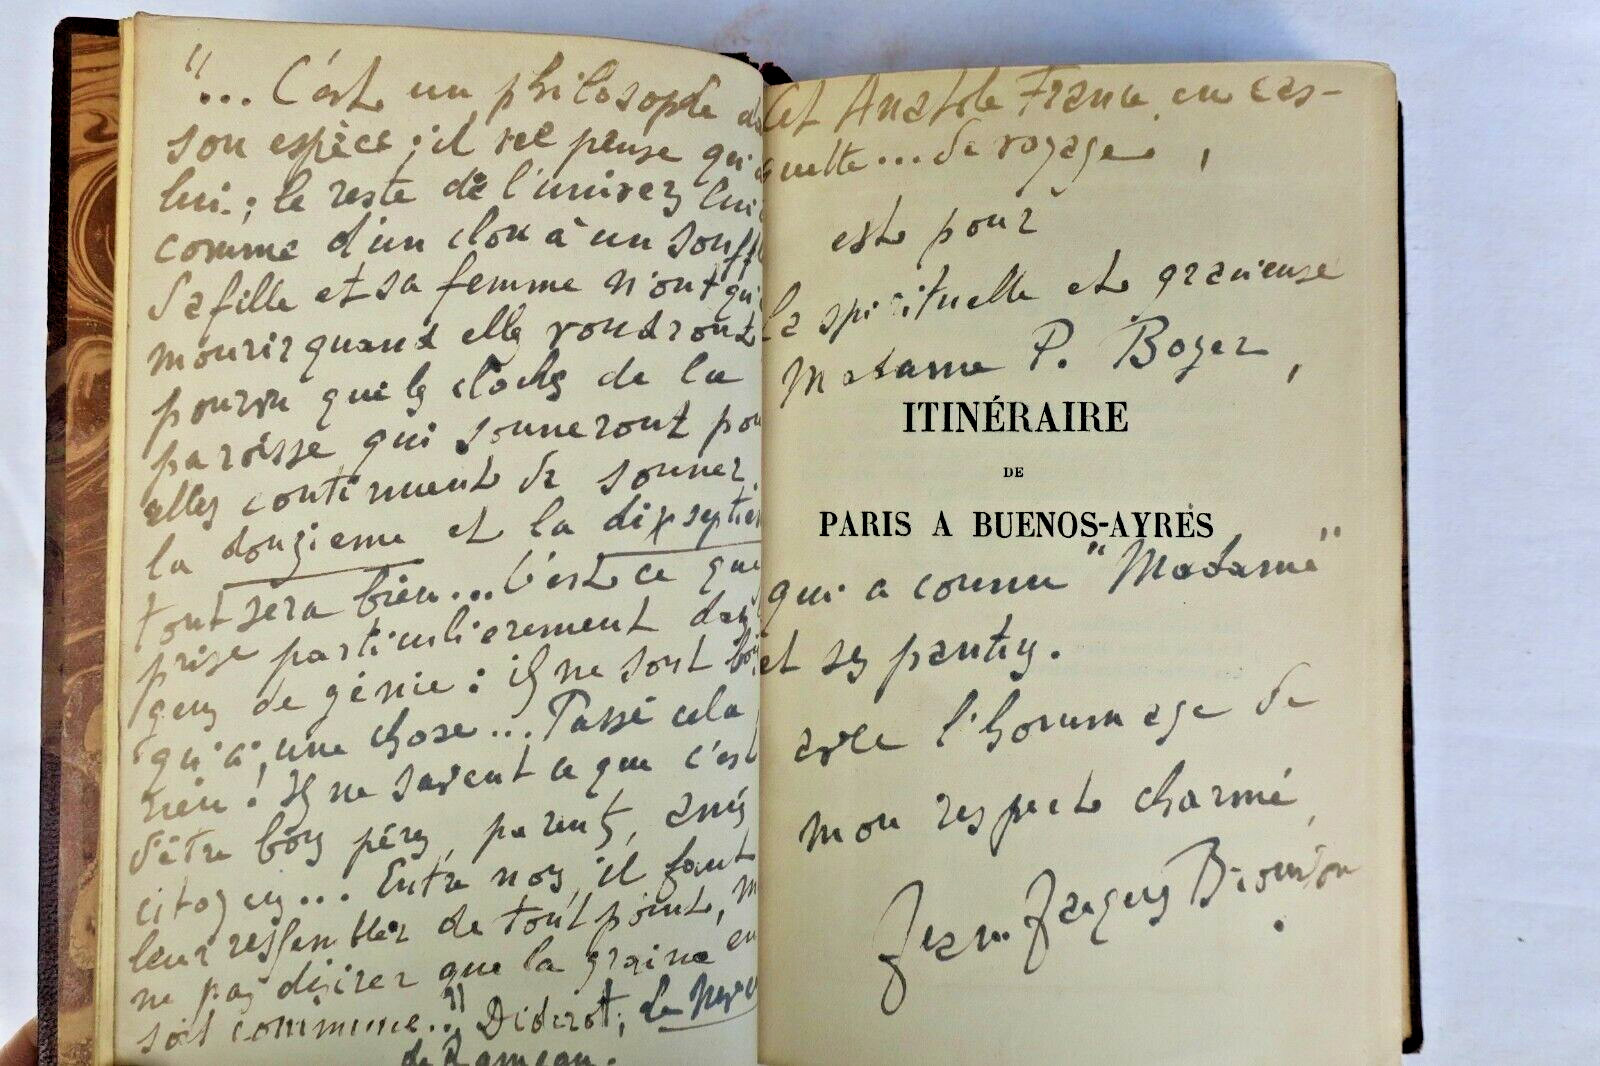 "... C'est un philosophe da
son espèce ; il ne pense qu'à
lui ; le reste de l'univers lui
comme d'un clou à un souffl
Sa fille et sa femme n'ont qu'
mourir quand elles voudront
pourvu que les cloches de la
paroisse qui sonneront pou
elles continuent de sonner
la douzieme et la dixseptiem
tout sera bien... C'est ce que
prise particulierement dans
gens de génie : ils ne sont bons
qu'à une chose... Passé cela,
rien ! Ils ne savent ce que c'est
d'être bons pères, parents, amis
citoyens... Entre nous, il faut
leur ressembler de tout point, m
ne pas désirer que la graine en
soit commune..." Diderot, Le Neveu
de Rameau.
Cet Anatole France en cas-
quette... de voyage,
est pour
la spirituelle et gracieuse
Madame P. Boyer,
ITINÉRAIRE
DE
PARIS A BUENOS-AYRES
qui a connu "Madame"
et ses pantins.
avec l'hommage de
mon respect charmé,
Jean-Jacques Brousson.